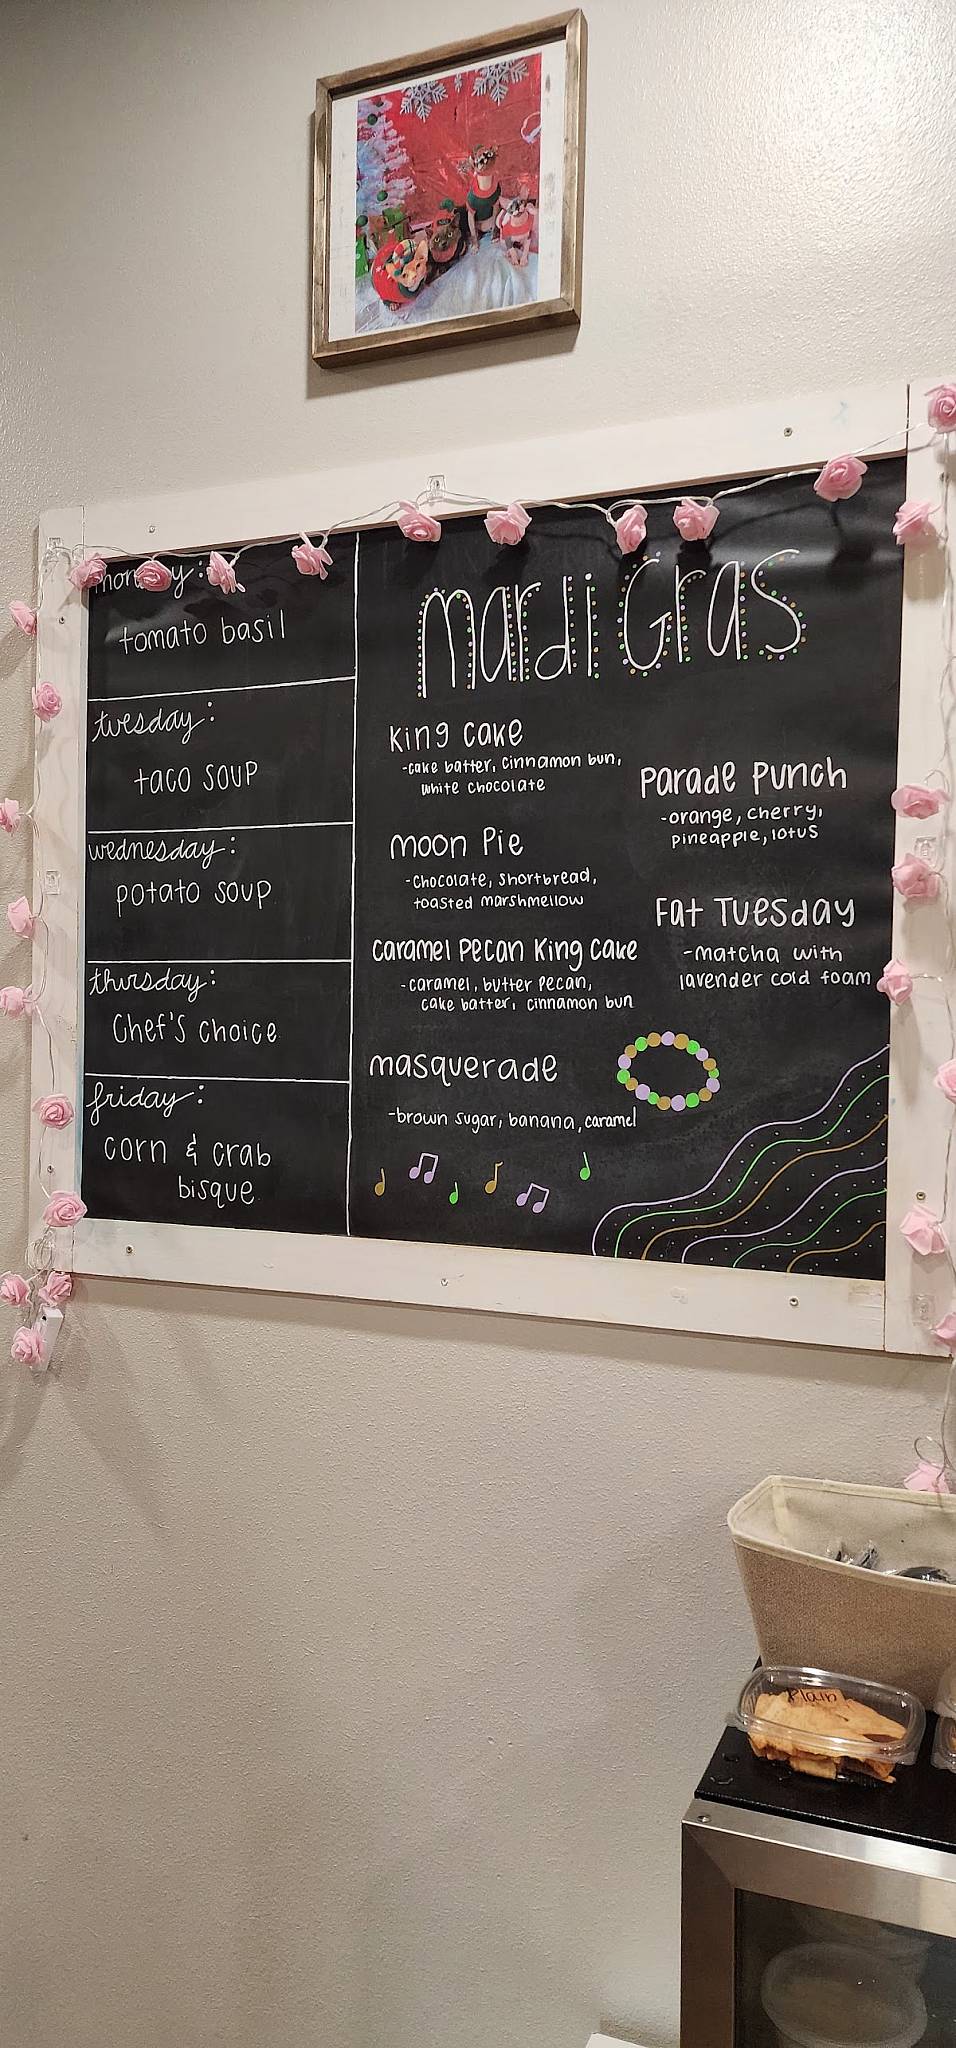 monday:
tomato basil
tuesday:
taco soup
wednesday:
potato soup
thursday:
Chef's choice
friday:
corn & crab
bisque
mardi Gras
King cake
-cake batter, cinnamon bun,
white chocolate
moon Pie
-chocolate, shortbread,
toasted marshmellow
caramel Pecan King Cake
-caramel, butter pecan,
cake batter, cinnamon bun
masquerade
-brown sugar, banana, caramel
Parade Punch
-orange, cherry,
pineapple, lotus
Fat Tuesday
-matcha with
lavender cold foam
Plain